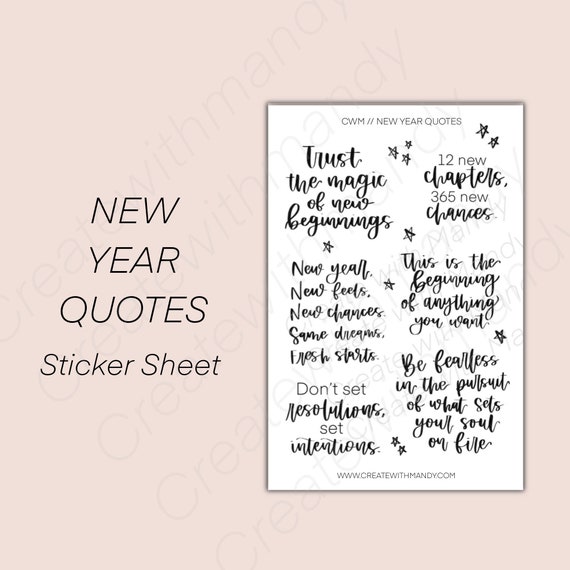 NEW
YEAR
QUOTES
Sticker Sheet
CWM // NEW YEAR QUOTES
Trust
the magic
of new
beginnings
12 new
chapters,
365 new
chances.
New year,
New feels,
New chances.
Same dreams,
Fresh starts.
This is the
beginning
of anything
you want.
Don't set
resolutions,
set
intentions.
Be fearless
in the pursuit
of what sets
your soul
on fire
WWW.CREATEWITHMANDY.COM
Createwithmandy
Createwithmandy
Createwithmandy
Createwithmandy